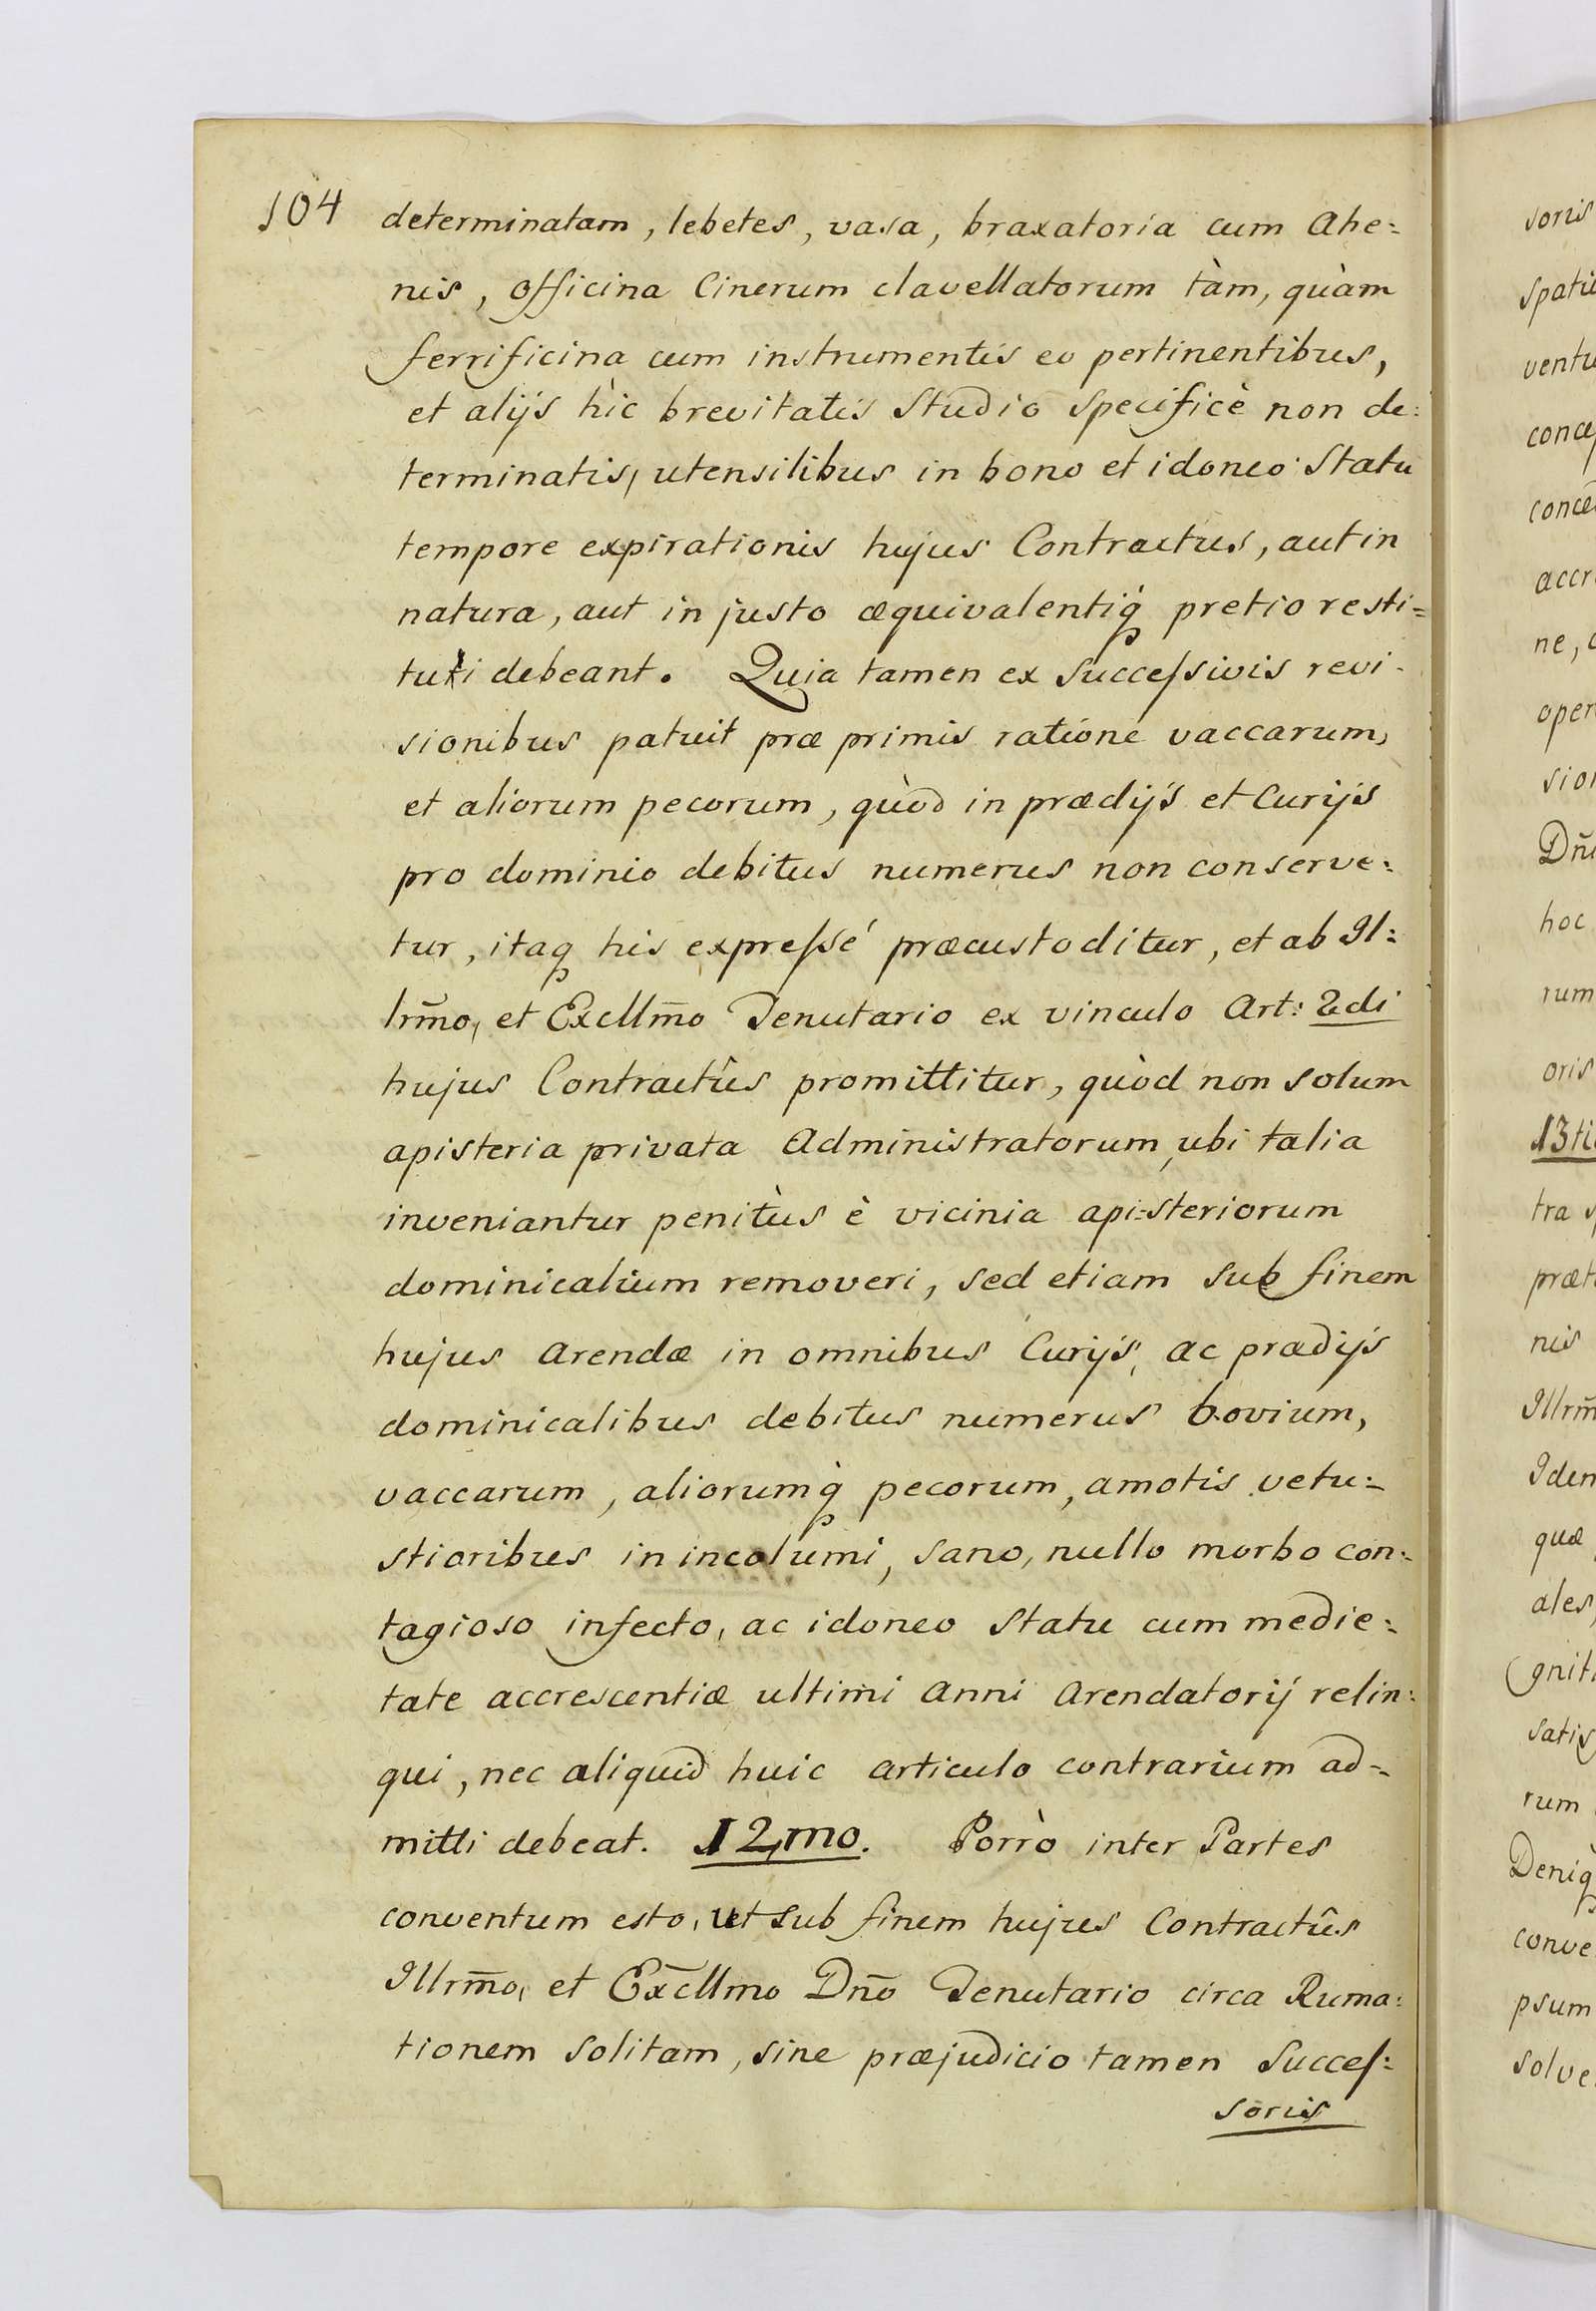 104
determinatam, lebetes, vasa, braxatoria cum Ahe:
nis, Officina Cinerum clavellatorum tàm, quàm
ferrificina cum instrumentis eo pertinentibus,
et alijs hìc brevitatis Studio Specificè non de:
terminatis, utensilibus in bono et idoneo Statu
tempore expirationis hujus Contractus, aut in
natura, aut in justo æquivalentiq́ pretio resti=
tui debeant. Quia tamen ex Succeſsivis revi-
sionibus patuit præ primis ratione vaccarum,
et aliorum pecorum, quòd in prædijs et Curijs
pro dominio debitus numerus non conserve:
tur, itaq his expreſsé præcustoditur, et ab Il:
lrm̃o, et Excllm̃o Tenutario ex vinculo Art: 2di
hujus Contractûs promittitur, quòd non solum
apisteria privata Administratorum, ubi talia
inveniantur penitùs è vicinia api=steriorum
dominicalium removeri, sed etiam Sub finem
hujus Arendæ in omnibus Curijs, ac prædijs
dominicalibus debitus numerus bovium,
vaccarum, aliorumq́ pecorum, amotis vetu:=
stioribus in incolumi, sano, nullo morbo con:
tagioso infecto, ac idoneo Statu cum medie:
tate accrescentiæ ultimi Anni Arendatorij relin:
qui, nec aliquid huic articulo contrarium ad-
mitti debeat. 12,mo. Porrò inter Partes
conventum esto, ut Sub finem hujus Contractûs
Illrm̃o, et Ex̃cllmo Dño Tenutario circa Ruma:
tionem Solitam, sine præjudicio tamen Succeſ:
soris
soris
spatiu
ventu
concep
conced
accr
ne,
oper
sion
Dñi
hoc
rum
oris
13ti
tra
præt
nis
Illrm̃
Idem
quæ
ales
gniti
satis
rum
Deniq
conve
psum
solve